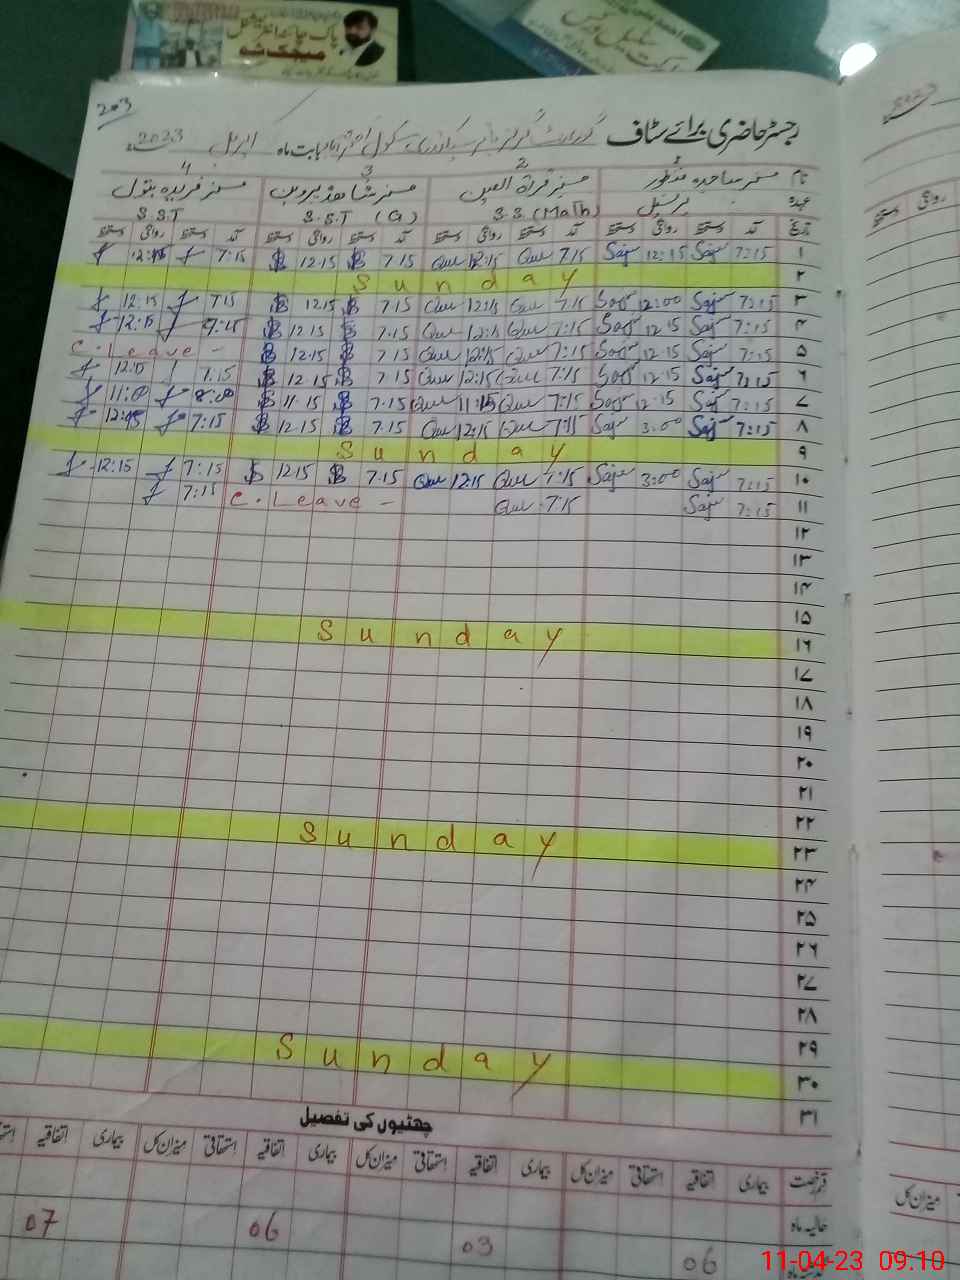 پاک چائنہ انٹرنیشنل
میجک شو
203
رجسٹر حاضری برائے سٹاف گورنمنٹ گرلز ہائر سیکنڈری سکول بابت ماہ اپریل 2023
نام 1 مسز ساجدہ منظور 2 مسز قراۃ العین 3 مسز شاہدہ پروین 4 مسز فریدہ بتول
عہدہ پرنسپل S.S (Math) S.S.T (G) S.S.T
تاریخ آمد دستخط روانگی دستخط آمد دستخط روانگی دستخط آمد دستخط روانگی دستخط آمد دستخط روانگی دستخط
۱ 7:15 Saj 12:15 Saj 7.15 Qur 12:15 Qur 7.15 12.15 7:15 12:15
۲ Sunday
۳ 7:15 Saj 12:00 Saj 7.15 Qur 12:15 Qur 7.15 12.15 7.15 12:15
۴ 7:15 Saj 12.15 Saj 7:15 Qur 12:15 Qur 7.15 12.15 7:15 12:15
۵ 7:15 Saj 12.15 Saj 7:15 Qur 12:15 Qur 7.15 12.15 C.Leave -
۶ 7:15 Saj 12.15 Saj 7:15 Qur 12:15 Qur 7.15 12.15 7.15
۷ 7:15 Saj 12.15 Saj 7:15 Qur 11:15 Qur 7.15 11.15 8:00 11:00
۸ 7:15 Saj 3:00 Saj 7:15 Qur 12:15 Qur 7.15 12.15 7:15 12:15
۹ Sunday
۱۰ 7:15 Saj 3:00 Saj 7:15 Qur 12:15 Qur 7.15 12.15 7:15 12:15
۱۱ 7:15 Saj 7:15 Qur C.Leave - 7:15
۱۲
۱۳
۱۴
۱۵
۱۶ Sunday
۱۷
۱۸
۱۹
۲۰
۲۱
۲۲
۲۳ Sunday
۲۴
۲۵
۲۶
۲۷
۲۸
۲۹
۳۰ Sunday
۳۱
چھٹیوں کی تفصیل
قسم رخصت بیماری اتفاقیہ استحقاقی میزان کل بیماری اتفاقیہ استحقاقی میزان کل بیماری اتفاقیہ استحقاقی میزان کل بیماری اتفاقیہ
حالیہ ماہ 06 03 06 07
روانگی دستخط
میزان کل
11-04-23 09.10